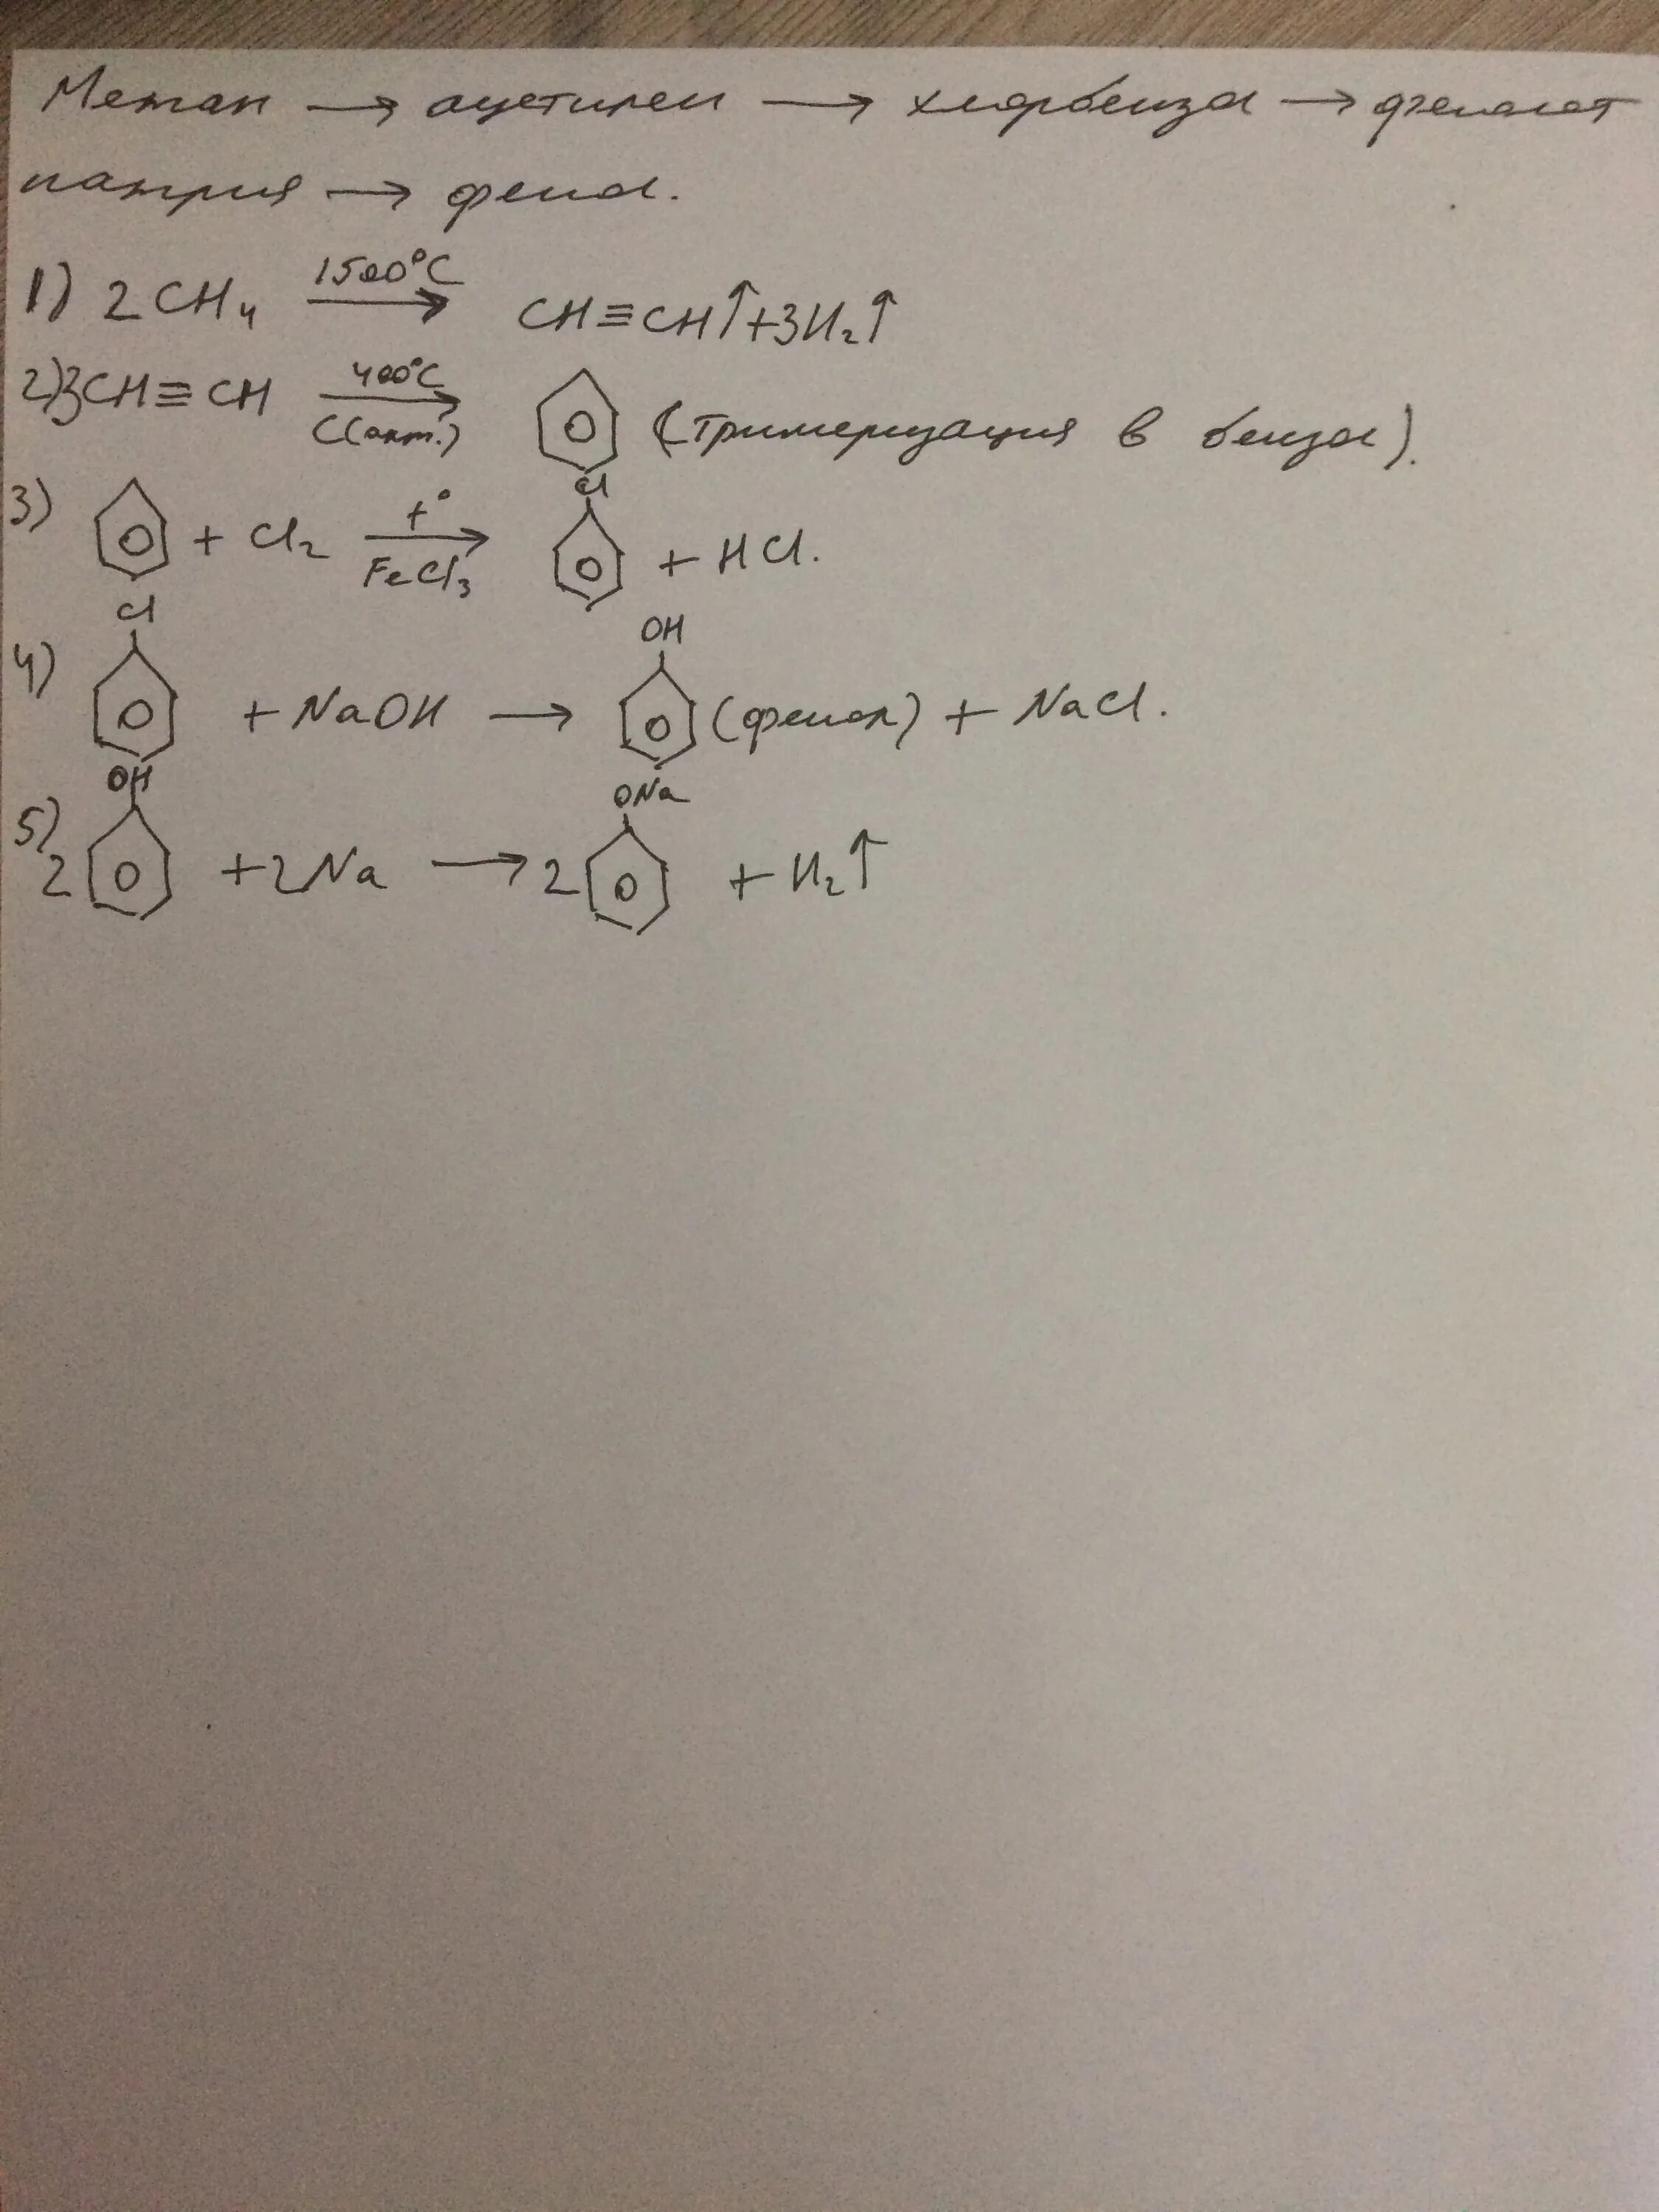 Метан → ацетилен → хлорбензол → фенолят
натрия → фенол.
1) 2CH₄ 1500°C → CH≡CH↑+3H₂↑
2) 3CH≡CH 400°C → C(акт.) (тримеризация в бензол).
3) + Cl₂ t° → FeCl₃ Cl + HCl.
4) Cl + NaOH → OH (фенол) + NaCl.
5) 2 OH + 2Na → 2 ONa + H₂↑